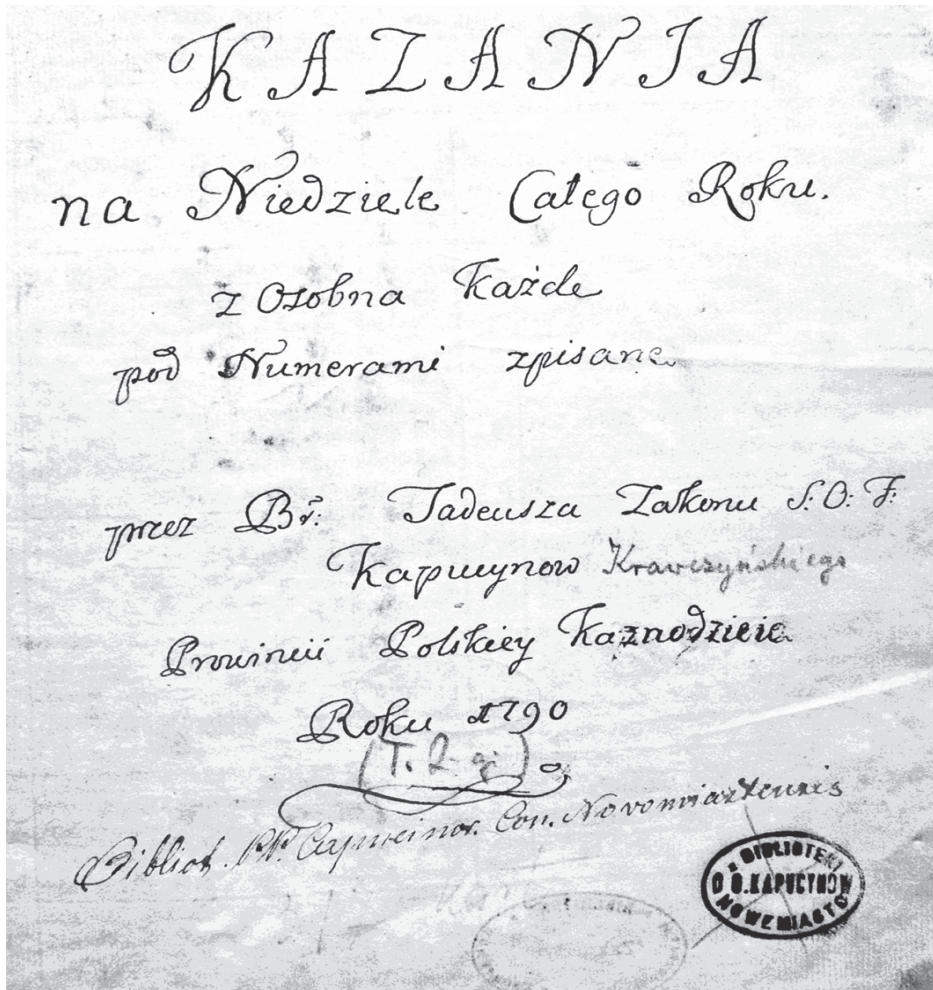 KAZANIA
na Niedziele Całego Roku.
z Osobna Każde
pod Numerami zpisane
przez Br: Tadeusza Zakonu S. O: F:
Kapucynow Krawczyńskiego
Prowincii Polskiey Kaznodzieie
Roku 1790
(T. 2-gi)
Bibliot. PP. Capucinor. Con. Novomiastensis
BIBLIOTEKI
O O. KAPUCYNOW
NOWEMIASTO